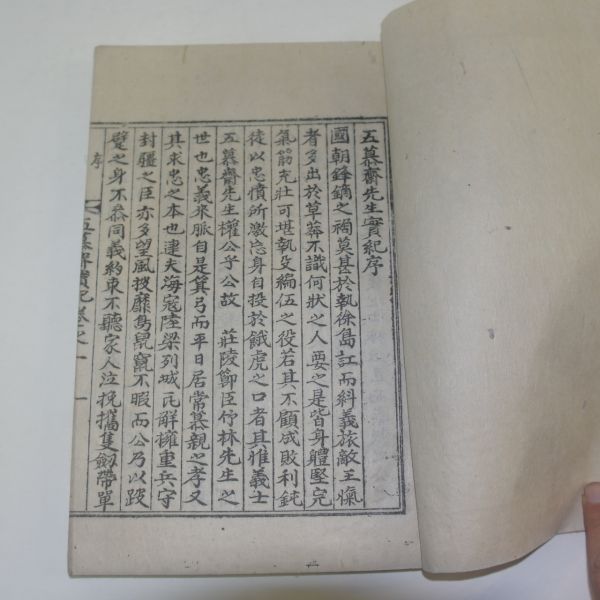 五慕齋先生實紀序
國朝鋒鏑之禍莫甚於執徐島訌而糾義旅敵王愾
者多出於草莽不識何狀之人要之是皆身軆堅完
氣筋充壯可堪執殳編伍之役若其不顧成敗利鈍
徒以忠憤所激忘身自投於餓虎之口者其雅義士
五慕齋先生權公乎公故 莊陵節臣竹林先生之
世也忠義來脈自是箕弓而平日居常慕親之孝又
其求忠之本也逮夫海寇陸梁列城瓦解擁重兵守
封疆之臣亦多望風披靡鳥鼠竄不暇而公乃以跛
躄之身不忝同義約束不聽家人泣挽攜隻劒帶單
五慕齋實紀卷之一
序
一